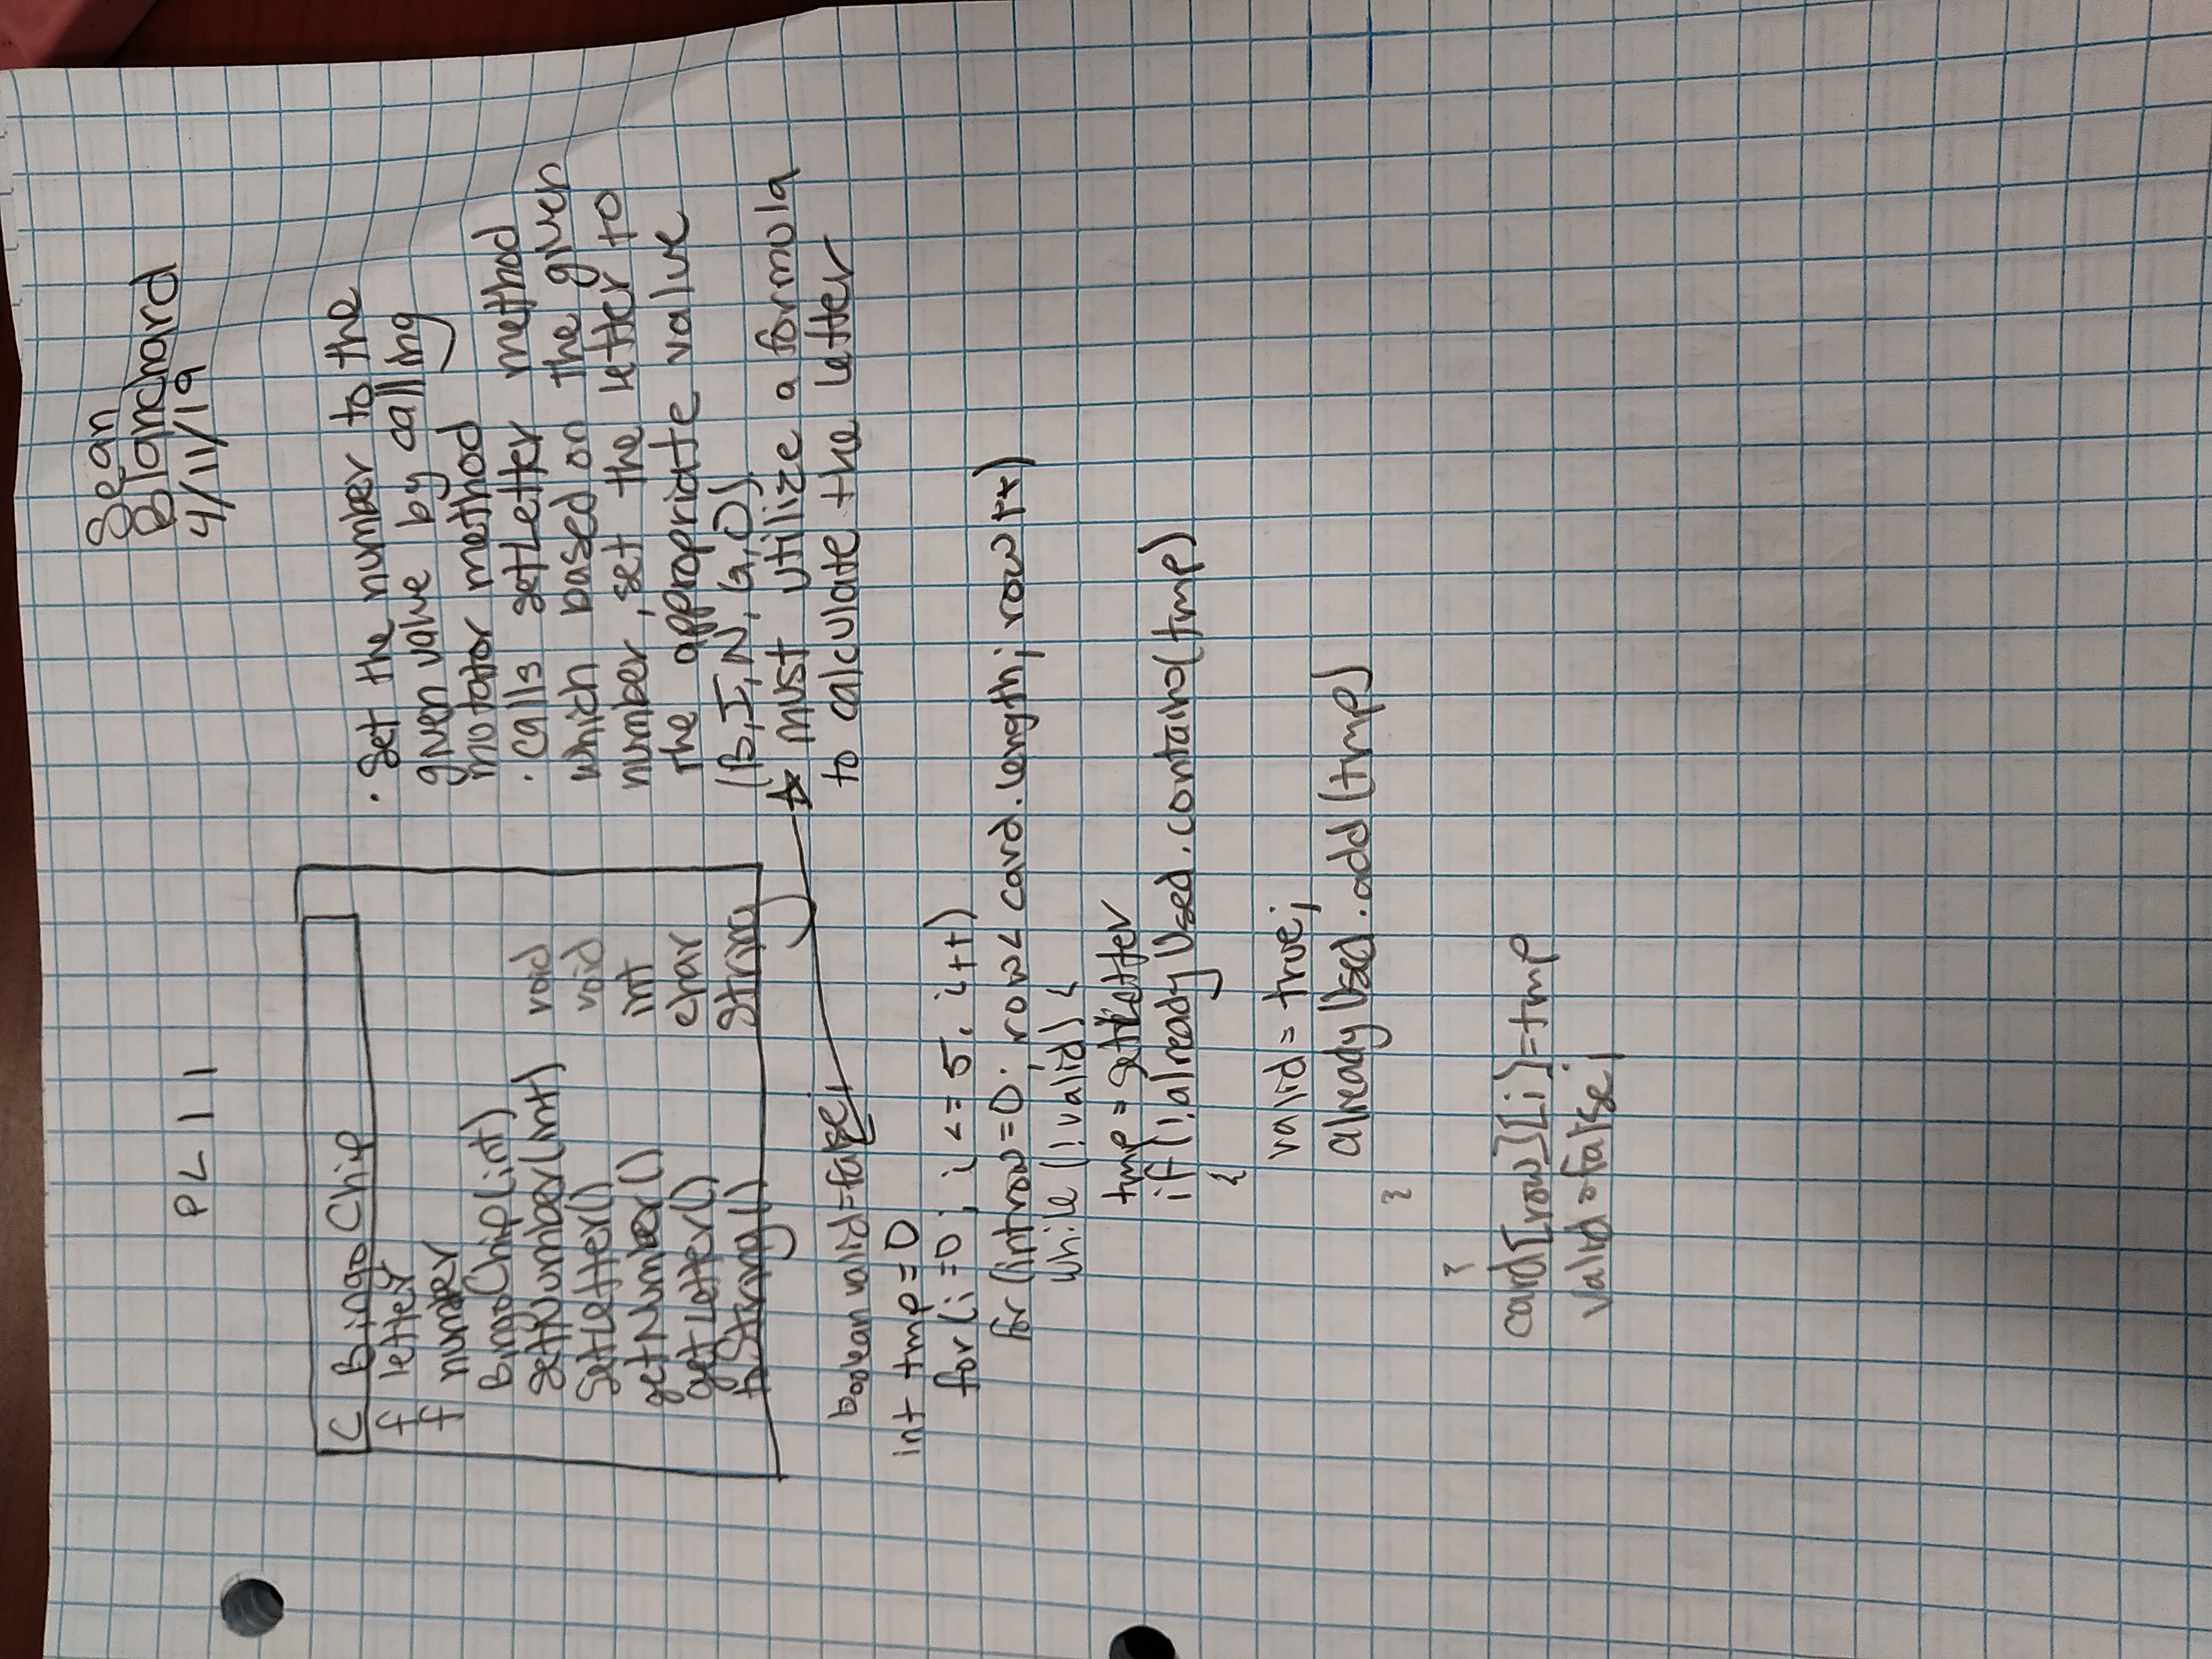 Sean
Blanchard
4/11/19
PL 11
C BingoChip
f letter
f number
BingoChip(int)
setNumber(int) void
setLetter() void
getNumber() int
getLetter() char
toString() String
· Set the number to the
given value by calling
mutator method
· calls setLetter method
which based on the given
number, set the letter to
the appropriate value
(B, I, N, G, O).
☆ must utilize a formula
to calculate the letter
boolean valid=false;
int tmp = 0
for(i=0; i <= 5; i++)
for(int row=0; row< card.length; row++)
while (!valid) {
tmp = setLetter
if(!alreadyUsed.contains(tmp)
{
valid = true;
alreadyUsed.add(tmp)
}
}
card[row][i]=tmp
valid=false;